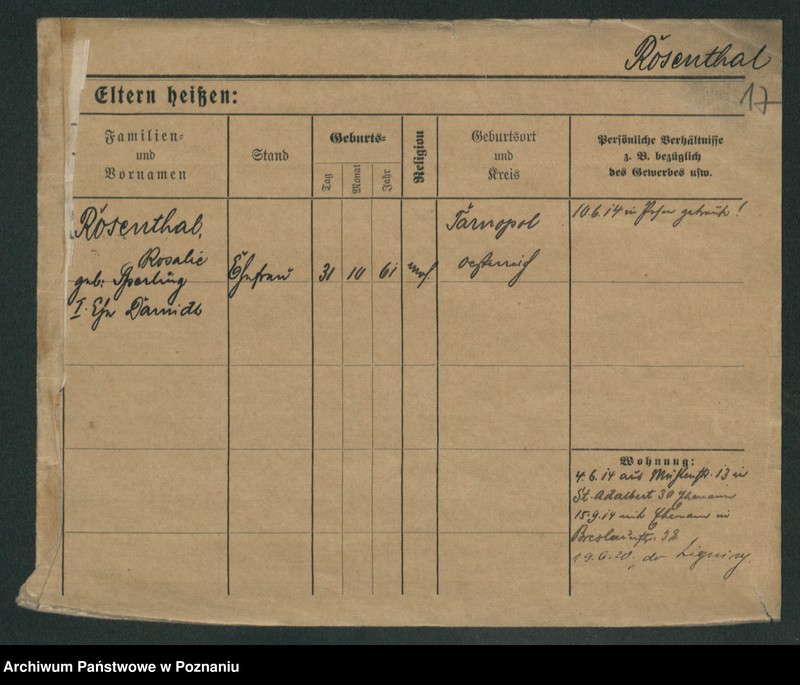 Rosenthal
17
Eltern heißen:
Familien=
und
Vornamen
Stand
Geburts=
Tag
Monat
Jahr
Religion
Geburtsort
und
Kreis
Persönliche Verhältnisse
z. B. bezüglich
des Gewerbes usw.
Rosenthal,
Rosalie
geb: Sperling
I. Ehe
Ehefrau
31
10
61
mos.
Tarnopol
Oesterreich
10.6.14 in Posen getraut!
Wohnung:
4.6.14 aus Mühlenstr. 13 in
St. Adalbert 30 Ehemann
15.9.14 mit Ehemann in
Breslauerstr. 38